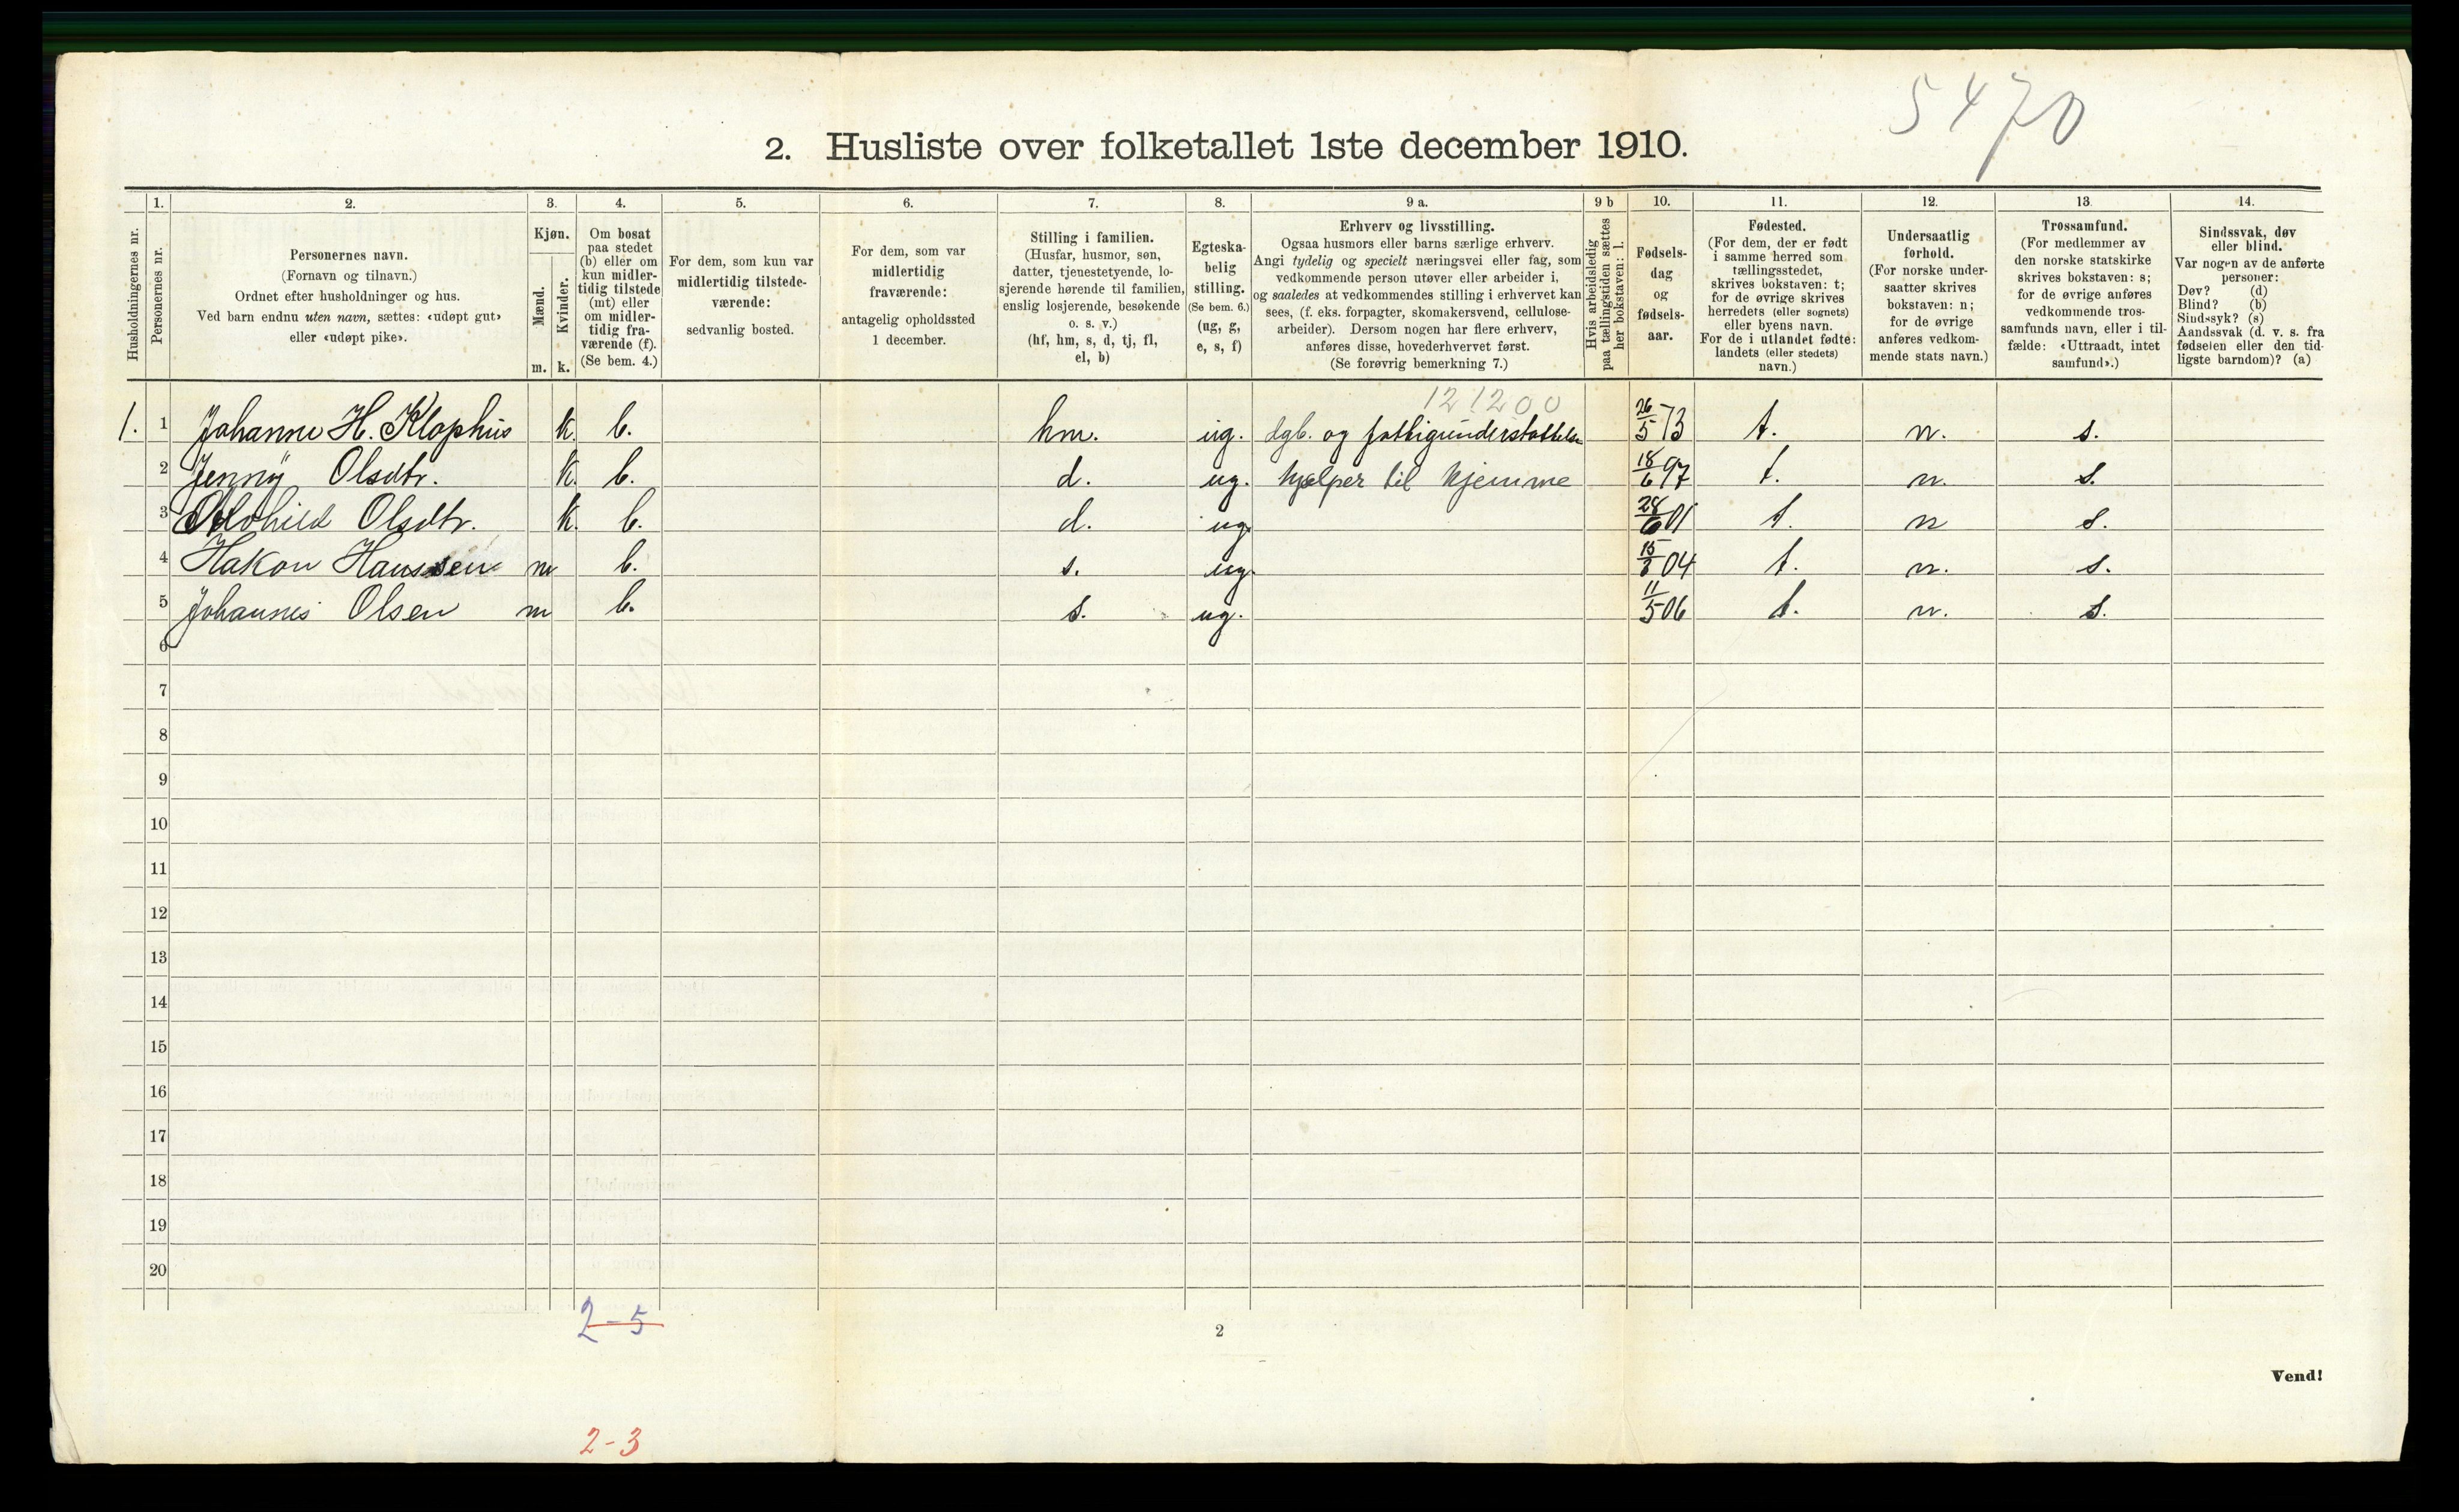 5470
2. Husliste over folketallet 1ste december 1910.
Husholdningernes nr.
1.
Personernes nr.
2.
Personernes navn.
(Fornavn og tilnavn.)
Ordnet efter husholdninger og hus.
Ved barn endnu uten navn, sættes: «udøpt gut»
eller «udøpt pike».
3.
Kjøn.
Mænd.
Kvinder.
m. k.
4.
Om bosat
paa stedet
(b) eller om
kun midler-
tidig tilstede
(mt) eller
om midler-
tidig fra-
værende (f).
(Se bem. 4.)
5.
For dem, som kun var
midlertidig tilstede-
værende:
sedvanlig bosted.
6.
For dem, som var
midlertidig
fraværende:
antagelig opholdssted
1 december.
7.
Stilling i familien.
(Husfar, husmor, søn,
datter, tjenestetyende, lo-
sjerende hørende til familien,
enslig losjerende, besøkende
o. s. v.)
(hf, hm, s, d, tj, fl,
el, b)
8.
Egteska-
belig
stilling.
(Se bem. 6.)
(ug, g,
e, s, f)
9 a.
Erhverv og livsstilling.
Ogsaa husmors eller barns særlige erhverv.
Angi tydelig og specielt næringsvei eller fag, som
vedkommende person utøver eller arbeider i,
og saaledes at vedkommendes stilling i erhvervet kan
sees, (f. eks. forpagter, skomakersvend, cellulose-
arbeider). Dersom nogen har flere erhverv,
anføres disse, hovederhvervet først.
(Se forøvrig bemerkning 7.)
9 b
Hvis arbeidsledig
paa tællingstiden sættes
her bokstaven: l.
10.
Fødsels-
dag
og
fødsels-
aar.
11.
Fødested.
(For dem, der er født
i samme herred som
tællingsstedet,
skrives bokstaven: t;
for de øvrige skrives
herredets (eller sognets)
eller byens navn.
For de i utlandet fødte:
landets (eller stedets)
navn.)
12.
Undersaatlig
forhold.
(For norske under-
saatter skrives
bokstaven: n;
for de øvrige
anføres vedkom-
mende stats navn.)
13
Trossamfund.
(For medlemmer av
den norske statskirke
skrives bokstaven: s;
for de øvrige anføres
vedkommende tros-
samfunds navn, eller i til-
fælde: «Uttraadt, intet
samfund».)
14.
Sindssvak, døv
eller blind.
Var nogen av de anførte
personer:
Døv? (d)
Blind? (b)
Sindssyk? (s)
Aandssvak (d. v. s. fra
fødselen eller den tid-
ligste barndom)? (a)
121200
1. 1 Johanne H. Klophus k. b. hm. ug. dgb. og fattigunderstøttelse 26/5 73 t. n. s.
2 Jenny Olsdtr. k. b. d. ug. hjælper til hjemme 18/6 97 t. n. s.
3 Olsdtr. k. b. d. ug. 28/6 01 t. n s.
4 Hakon Hanssen m b. s. ug. 04 t. n. s.
5 Johannes Olsen m b. s. ug. 11/5 06 t. n. s.
6
7
8
9
10
11
12
13
14
15
16
17
18
19
20
2-5
2
Vend!
2-3